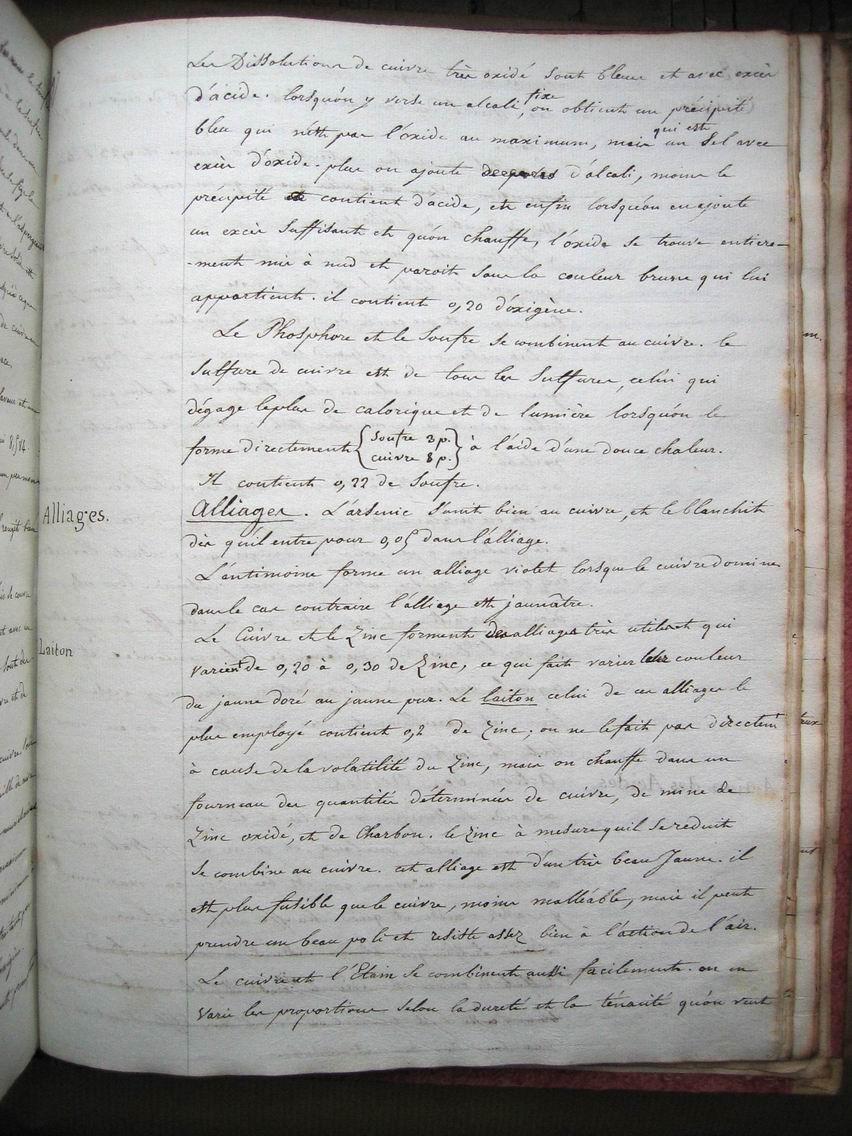 Les Dissolutions de cuivre très oxidé sont bleues et avec excès
d'acide. lorsqu'on y verse un alcali fixe, on obtient un précipité
bleu qui n'est pas l'oxide au maximum, mais qui est un Sel avec
excès d'oxide. plus on ajoute d'alcali, moins le
précipité contient d'acide, et enfin lorsqu'on en ajoute
un excès suffisant et qu'on chauffe, l'oxide se trouve entiere-
-ment mis à nud et paroit sous la couleur brune qui lui
appartient. il contient 0,20 d'oxigène.
Le Phosphore et le Soufre se combinent au cuivre. le
Sulfure de cuivre est de tous les Sulfures, celui qui
dégage le plus de calorique et de lumière lorsqu'on le
forme directement {Soufre 3 p. cuivre 8 p.} à l'aide d'une douce chaleur.
Il contient 0,22 de Soufre.
Alliages.
Alliages. L'arsenic s'unit bien au cuivre, et le blanchit
dès qu'il entre pour 0,05 dans l'alliage.
L'antimoine forme un alliage violet lorsque le cuivre domine
dans le cas contraire l'alliage est jaunâtre.
Le Cuivre et le Zinc forment des alliages très utiles et qui
Laiton
varient de 0,20 à 0,30 de Zinc, ce qui fait varier leur couleur
du jaune doré au jaune pur. Le laiton celui de ces alliages le
plus employé contient 0,2 de Zinc; on ne le fait pas directemt
à cause de la volatilité du Zinc, mais on chauffe dans un
fourneau des quantités déterminées de cuivre, de mine de
Zinc oxidé, et de Charbon. le Zinc à mesure qu'il se reduit
se combine au cuivre. cet alliage est d'un très beau Jaune. il
est plus fusible que le cuivre, moins malléable, mais il peut
prendre un beau poli et resiste assez bien à l'action de l'air.
Le cuivre et l'Etain se combinent aussi facilement. on en
varie les proportions selon la dureté et la ténacité qu'on veut